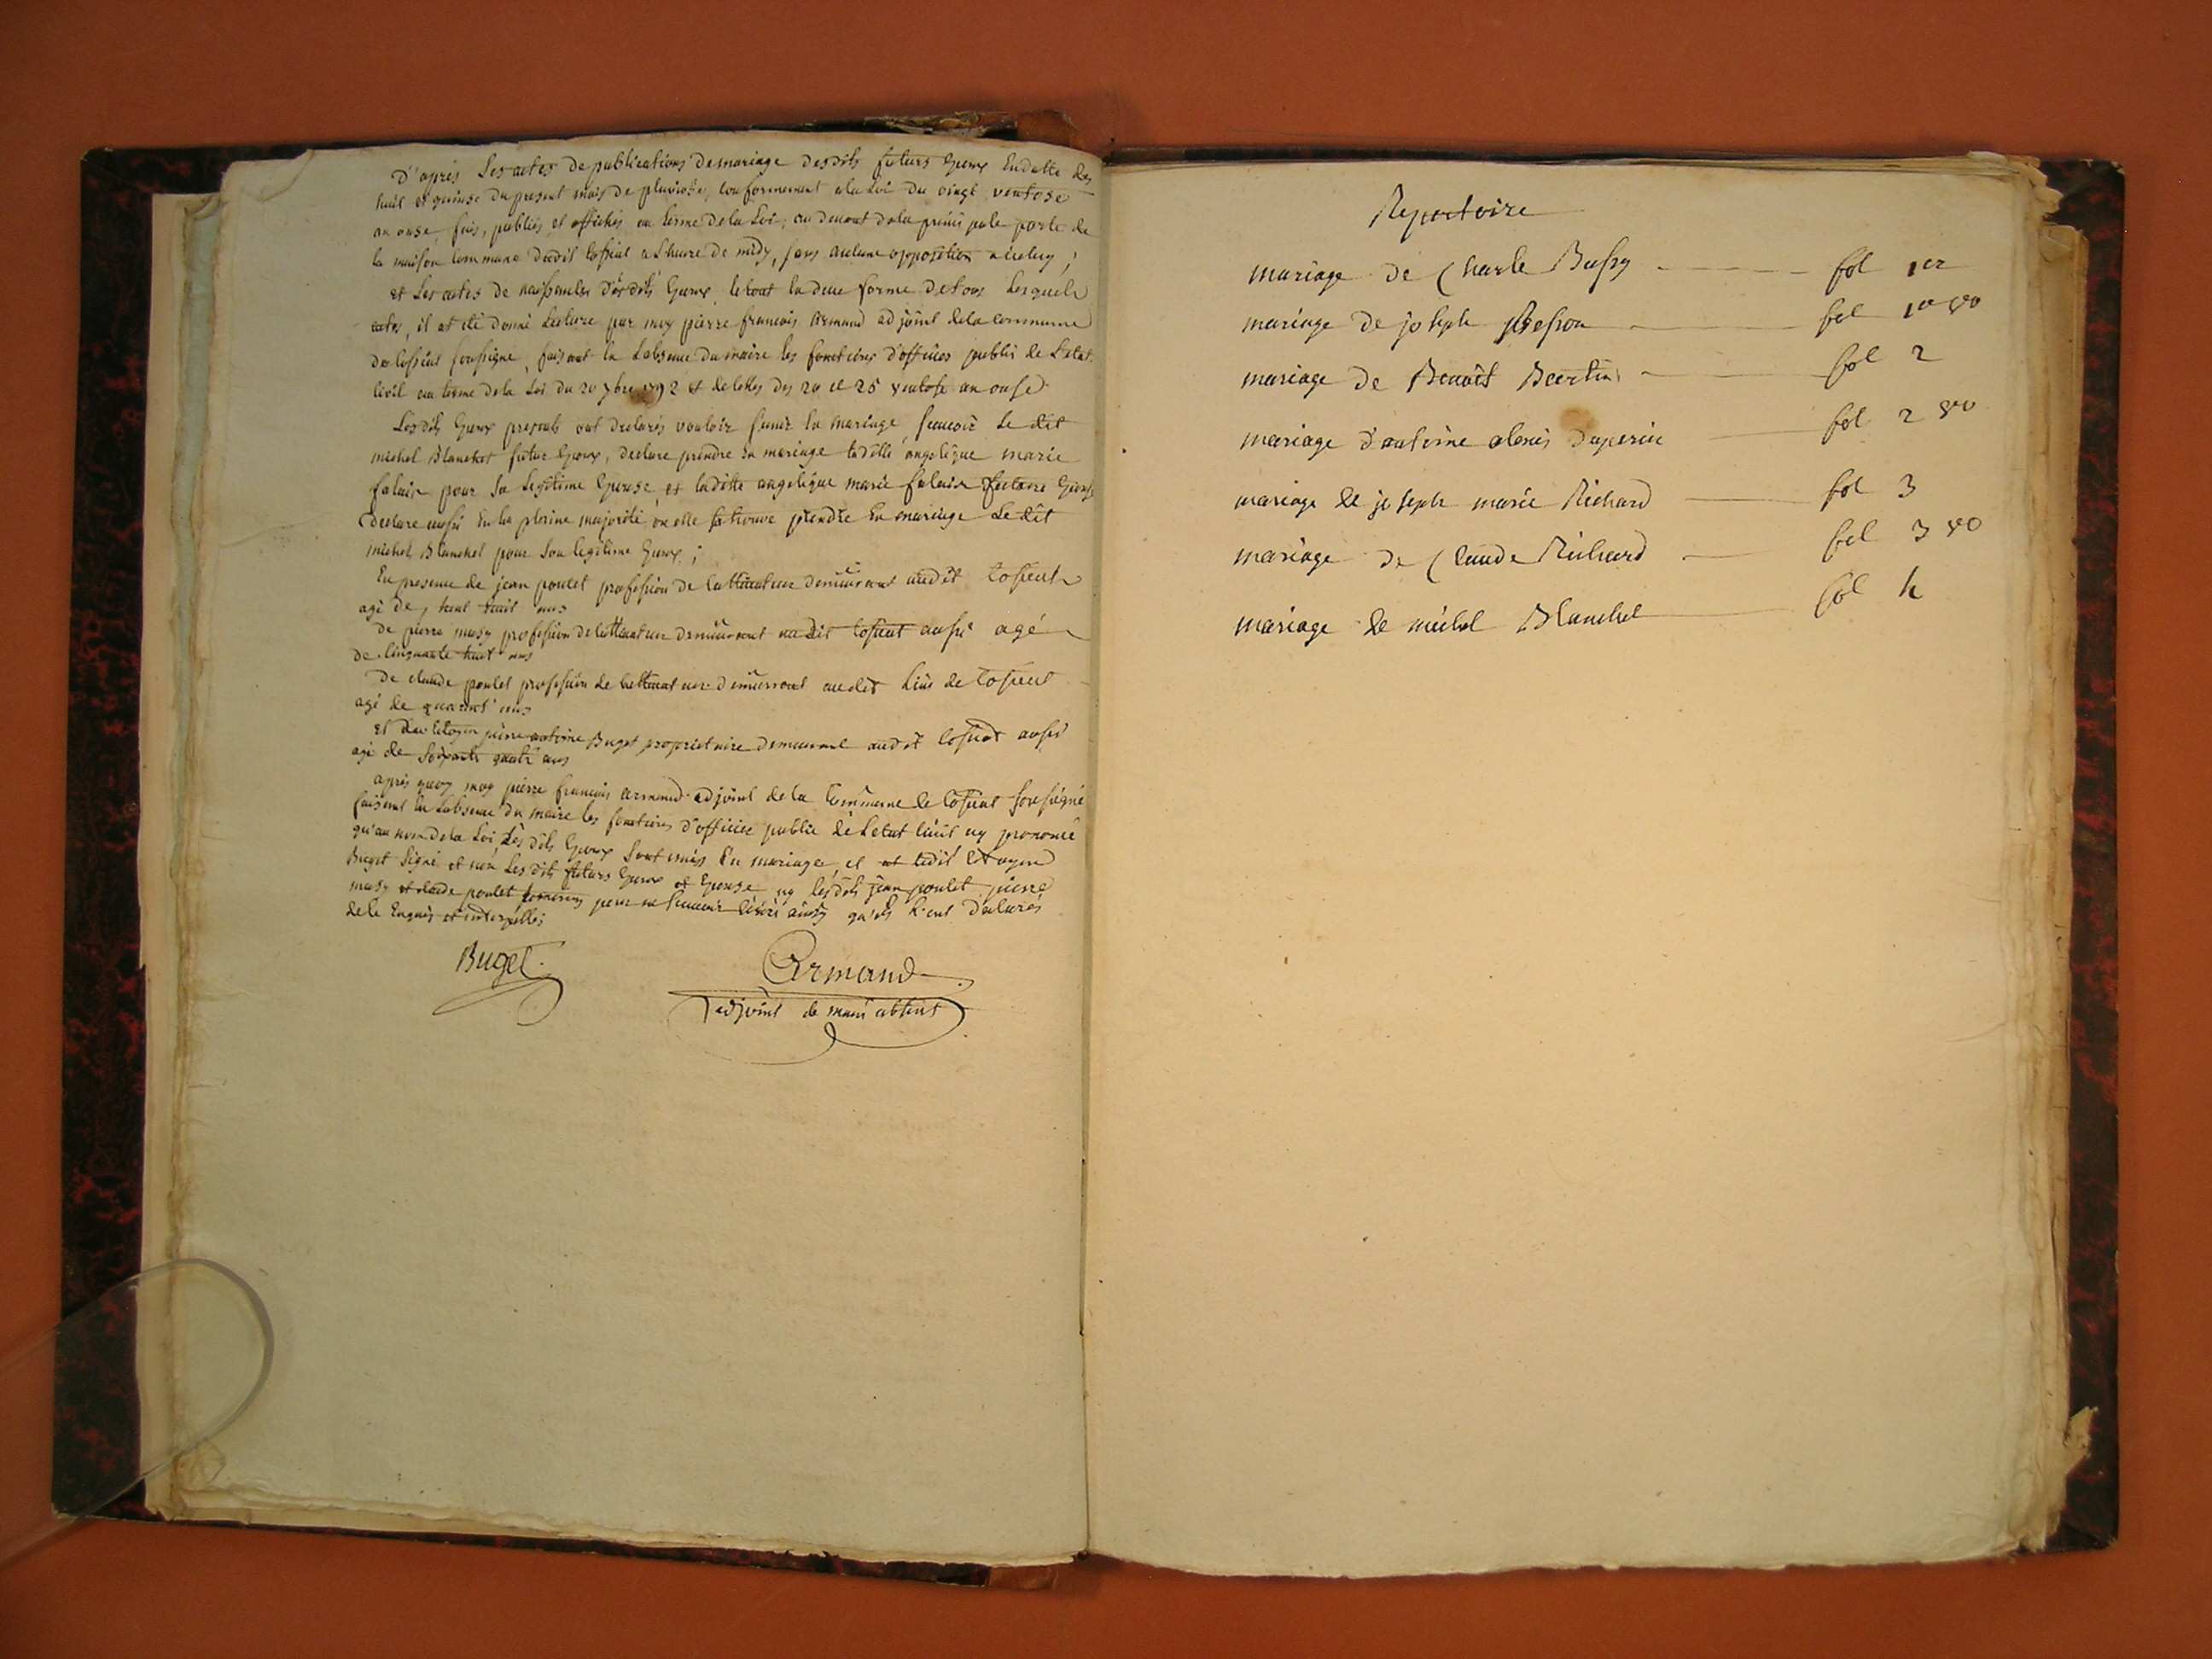 D'après Les actes de publications de mariage desdits futurs Epoux En datte des
huit et quinse du present mois de pluviose, conformement a la Loi du vingt ventose
an onse, fais, publiés et affichés au terme de la Loi, au devant de la principale porte de
la maison commune dudit Cossieux a Lheure de midy, sans aucune opposition a iceluy;
et Les actes de naissances desdits Epoux le tout En due forme de tous Lesquels
actes, il at eté donné Lecture par moy pierre francois Armand adjoint de la commune
de Cossieux soussigné, faisant En Labsence du maire les fonctions d'officier public de L'etat
civil au terme de la Loi du 20 7bre 1792 et de celles des 20 et 25 ventose an onse
Lesdits Epoux presents ont declarés vouloir s'unir En mariage, scavoir Le dit
michel Blanchet futur Epoux, declare prendre En mariage laditte angelique marie
pour sa Legitime Epouse, et laditte angelique marie future Epouse
Declare aussi En sa pleine majorité, ou elle se trouve prendre En mariage Le dit
michel Blanchet pour son legitime Epoux;
En presence de jean poulet profession de Cultivateur demeurant audit
agé de huit ans
de pierre profession de Cultivateur demeurant audit aussi agé
de Cinquante huit ans
De claude poulet profession de Cultivateur demeurant audit Lieu de
agé de quarant' ans
et du Citoyen pierre antoine Buget proprietaire demeurant audit aussi
agé de soixante quatre ans
après quoy moy pierre francois armand adjoint de la Commune de soussigné
faisant En Labsence du maire les fonctions d'officier public de Letat Civil ay prononcé
qu'au nom de la Loi, Les dits Epoux sont unis En mariage, et at ledit Citoyen
Buget signé et non Les dits futurs Epoux et Epouse ny lesdits jean poulet pierre
et claude poulet temoins pour ne scavoir Ecrire ainsy qu'ils L'ont declarés
de ce Enquis et interpellés
Buget
Armand
adjoint de maire absent
Repertoire
mariage de Charle Bussy fol 1er
mariage de joseph Besson fol 1er vo
mariage de Benoît Bertin fol 2
mariage d'antoine alexis Duperier fol 2 vo
mariage de joseph marie Richard fol 3
mariage de Claude Richard fol 3 vo
mariage de michel Blanchet fol 4